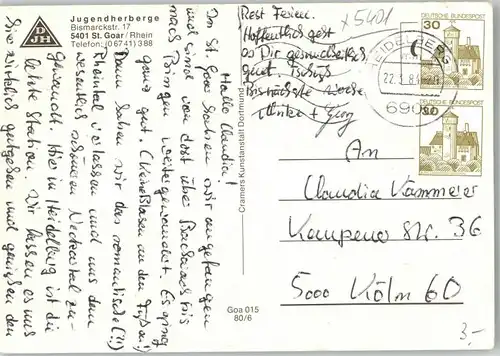 DJH
Jugendherberge
Bismarckstr. 17
5401 St. Goar / Rhein
Telefon: (0 67 41) 3 88
Hallo Claudia!
In St. Goar haben wir angefangen
und sind von dort über Bacharach bis
nach Bingen weitergewandert. Es ging
ganz gut. (Kleine Blasen an den Füßen!)
Dann haben wir das romantische (?!)
Rheintal verlassen und uns dem
wesentlich schöneren Neckartal zu-
gewandt. Hier in Heidelberg ist die
letzte Station. Wir lassen es uns
hier wirklich gutgehen und genießen den
Rest Ferien.
Hoffentlich geht
es Dir gesundheitlich
gut. Tschüß
Bis nächste Woche
Ulrike + Georg
x5401
HEIDELBERG
22.3.8
6900
30
DEUTSCHE BUNDESPOST
30
DEUTSCHE BUNDESPOST
Cramers Kunstanstalt Dortmund
Goa 015
80/6
An
Claudia Kammeier
Kempener Str. 36
5000 Köln 60
3,-